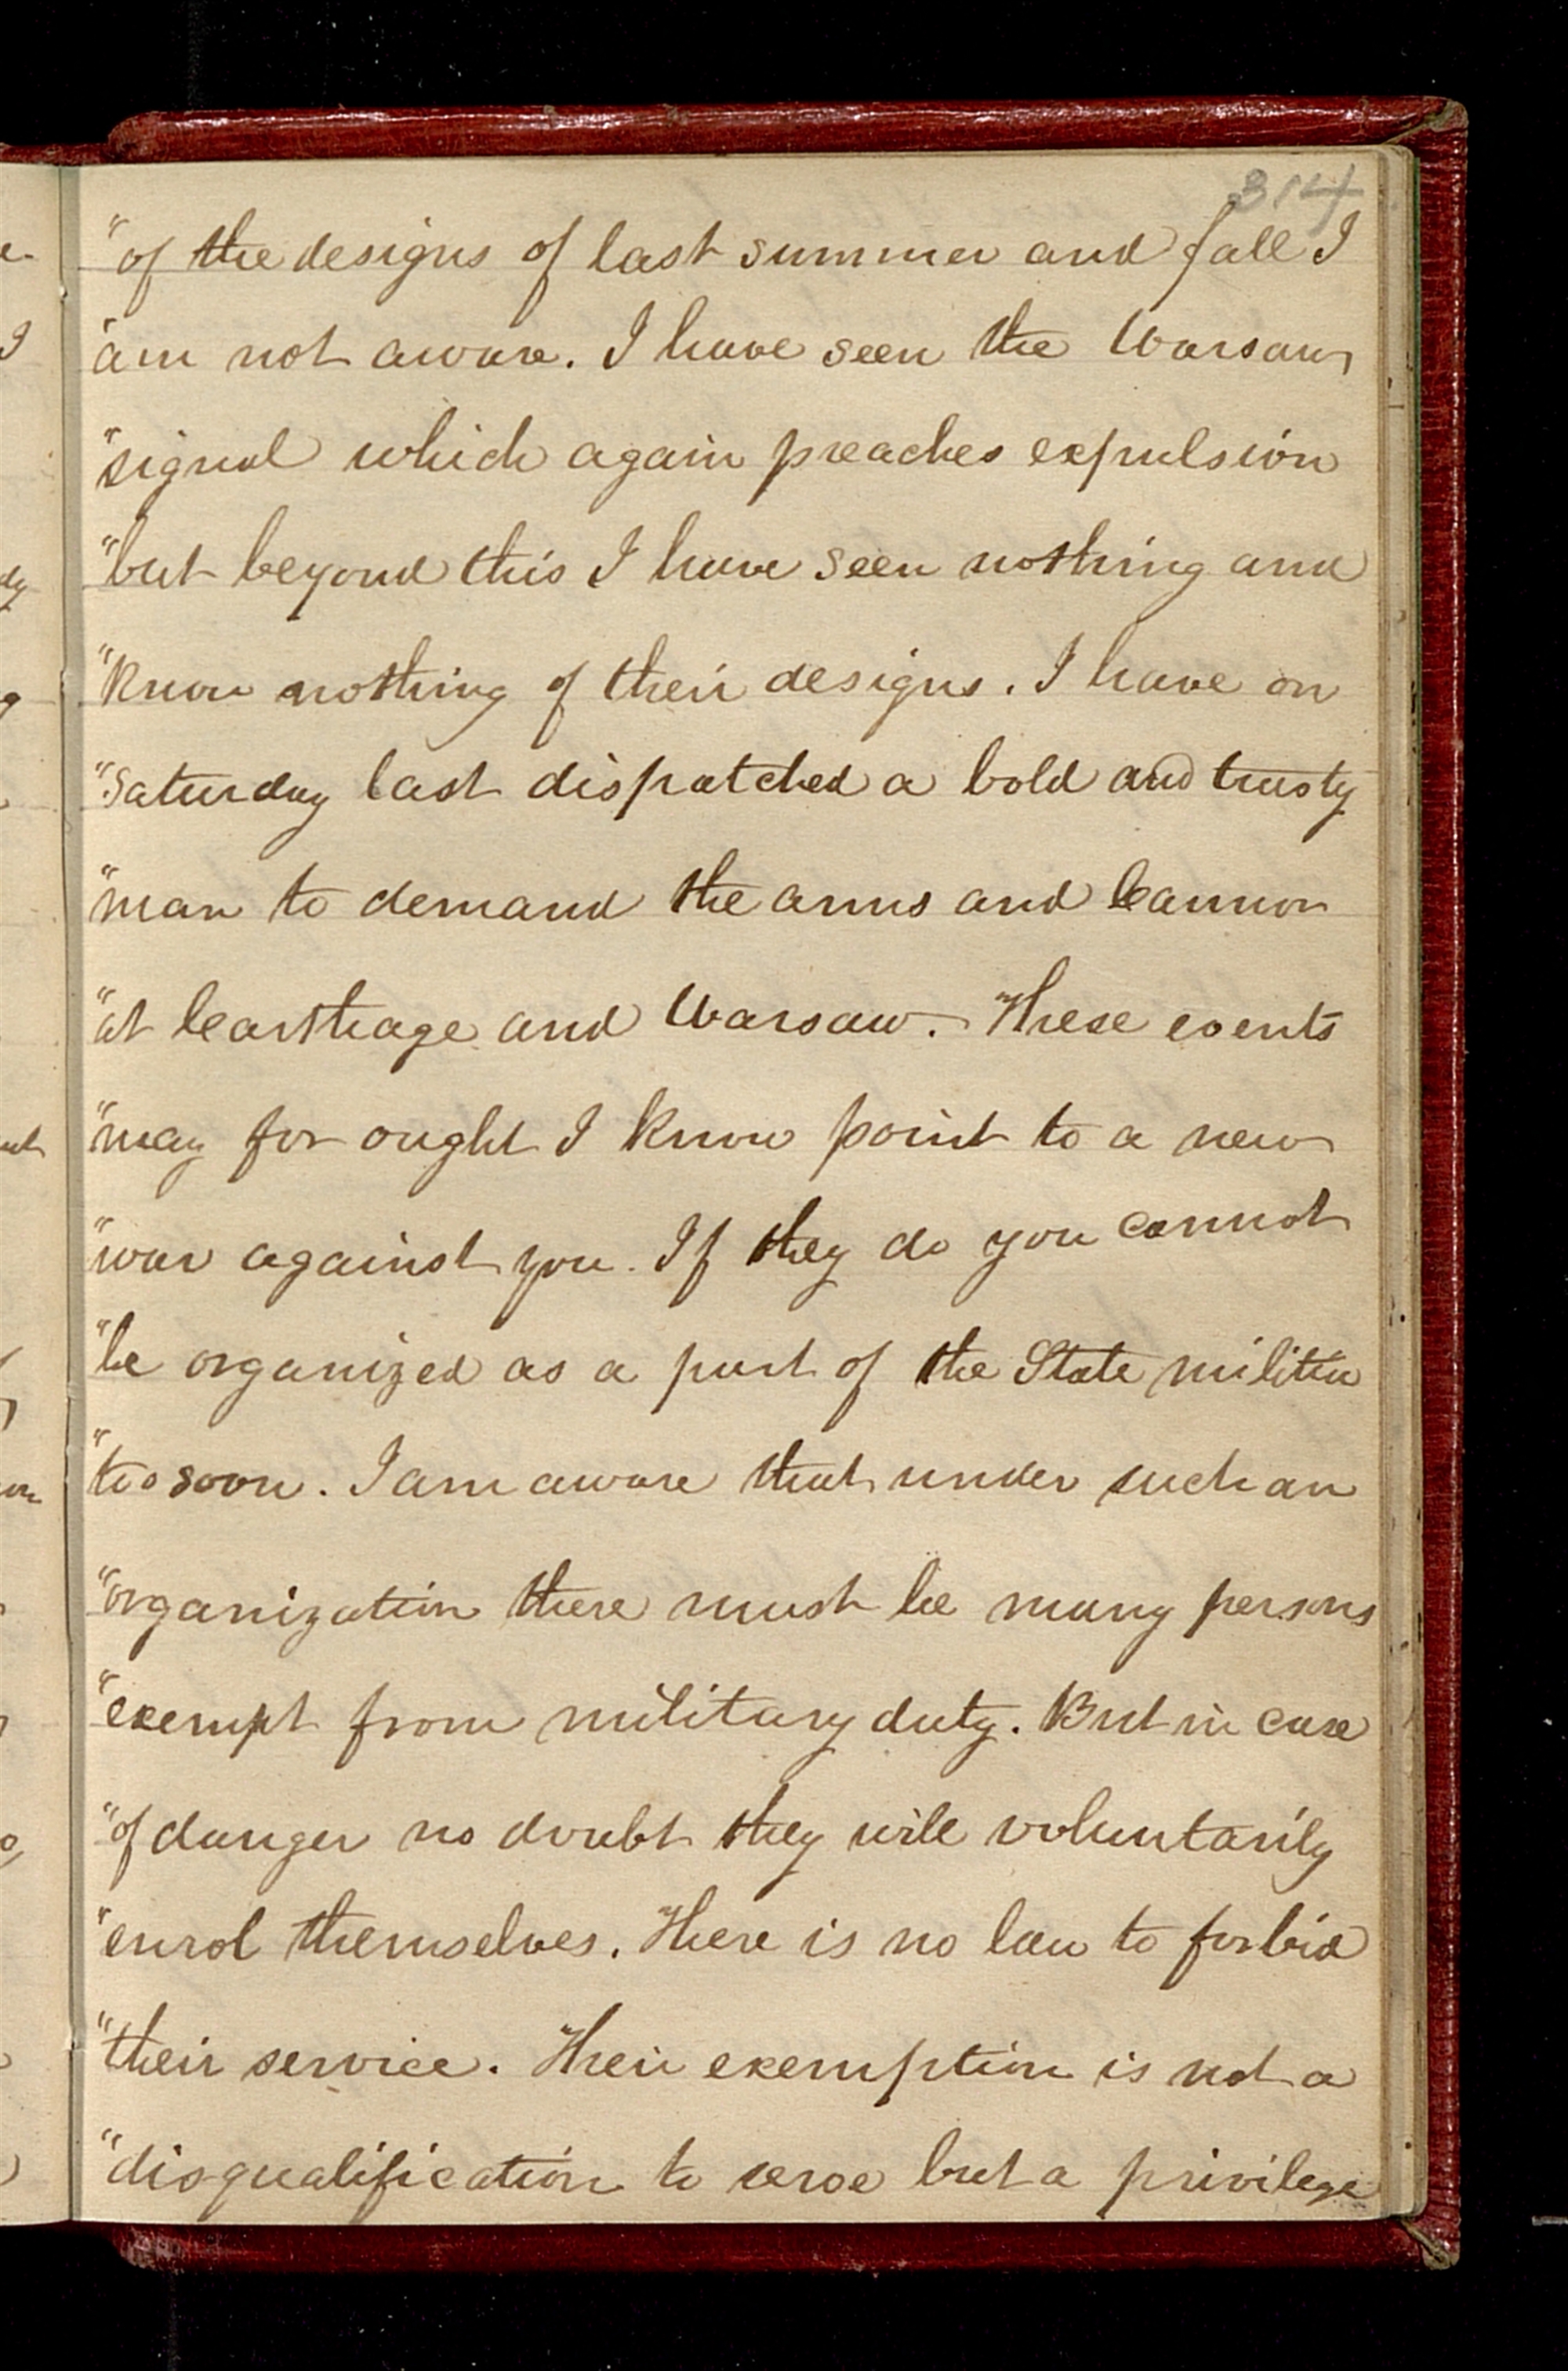 314
"of the designs of last summer and fall I
"am not aware. I have seen the Warsaw
"signal which again preaches expulsion
"but beyond this I have seen nothing and
"Know nothing of their designs. I have on
"Saturday last dispatched a bold and trusty
"man to demand the arms and Cannon
"at Carthage and Warsaw. These events
"may for ought I Know point to a new
"war against you. If they do you cannot
"be organized as a part of the State militia
"too soon. I am aware that under such an
"organization there must be many persons
"exempt from military duty. But in case
"of danger no doubt they will voluntarily
"enrol themselves. There is no law to forbid
"their service. Their exemption is not a
"disqualification to serve but a privilege